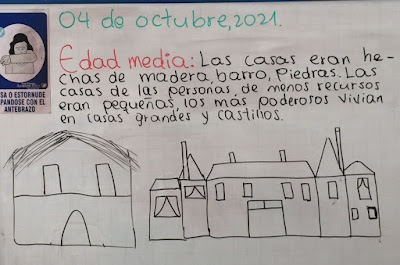 04 de octubre, 2021.
Edad media: Las casas eran he-
chas de madera, barro, Piedras. Las
casas de las personas de menos recursos
eran pequeñas, los más poderosos vivían
en casas grandes y castillos.
SA O ESTORNUDE
PÁNDOSE CON EL
ANTEBRAZO